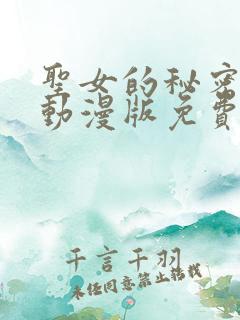 聖女的秘密
動漫版免費
千言千羽
未經同意禁止轉載